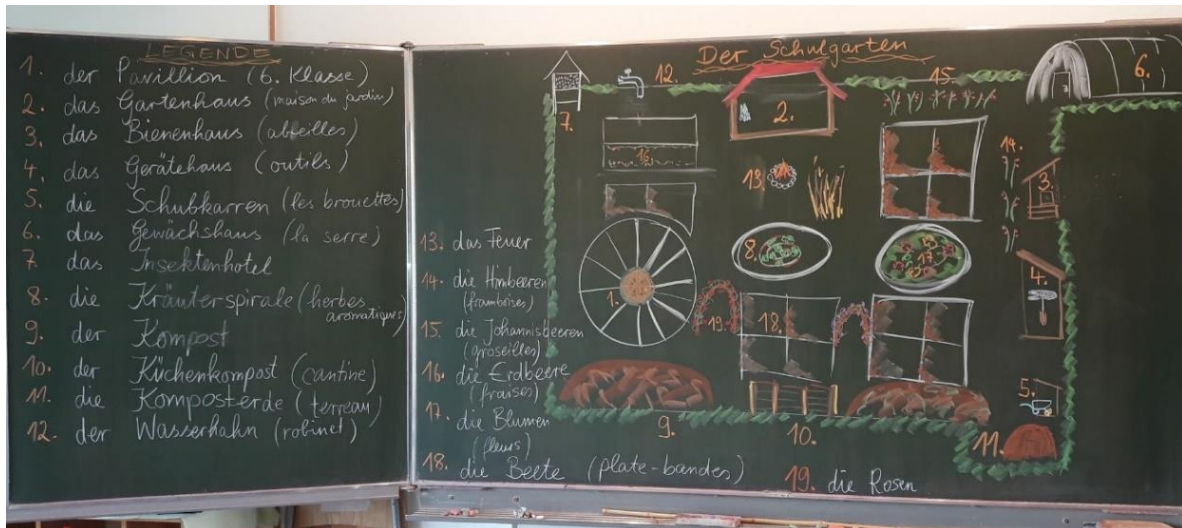 LEGENDE
1. der Pavillion (6. Klasse)
2. das Gartenhaus (maison du jardin)
3. das Bienenhaus (abeilles)
4. das Gerätehaus (outils)
5. die Schubkarren (les brouettes)
6. das Gewächshaus (la serre)
7. das Insektenhotel
8. die Kräuterspirale (herbes
aromatiques)
9. der Kompost
10. der Küchenkompost (cantine)
11. die Komposterde (terreau)
12. der Wasserhahn (robinet)
Der Schulgarten
12.
15.
6.
7.
2.
16.
14.
13.
3.
8.
17.
4.
1.
19.
18.
5.
9.
10.
11.
13. das Feuer
14. die Himbeeren
(framboises)
15. die Johannisbeeren
(groseilles)
16. die Erdbeere
(fraises)
17. die Blumen
(fleurs)
18. die Beete (plate-bandes)
19. die Rosen